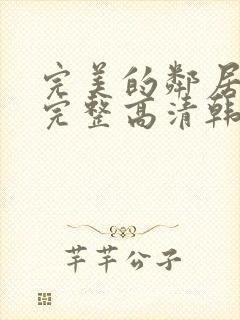 完美的邻居
完整高清韩
芊芊公子